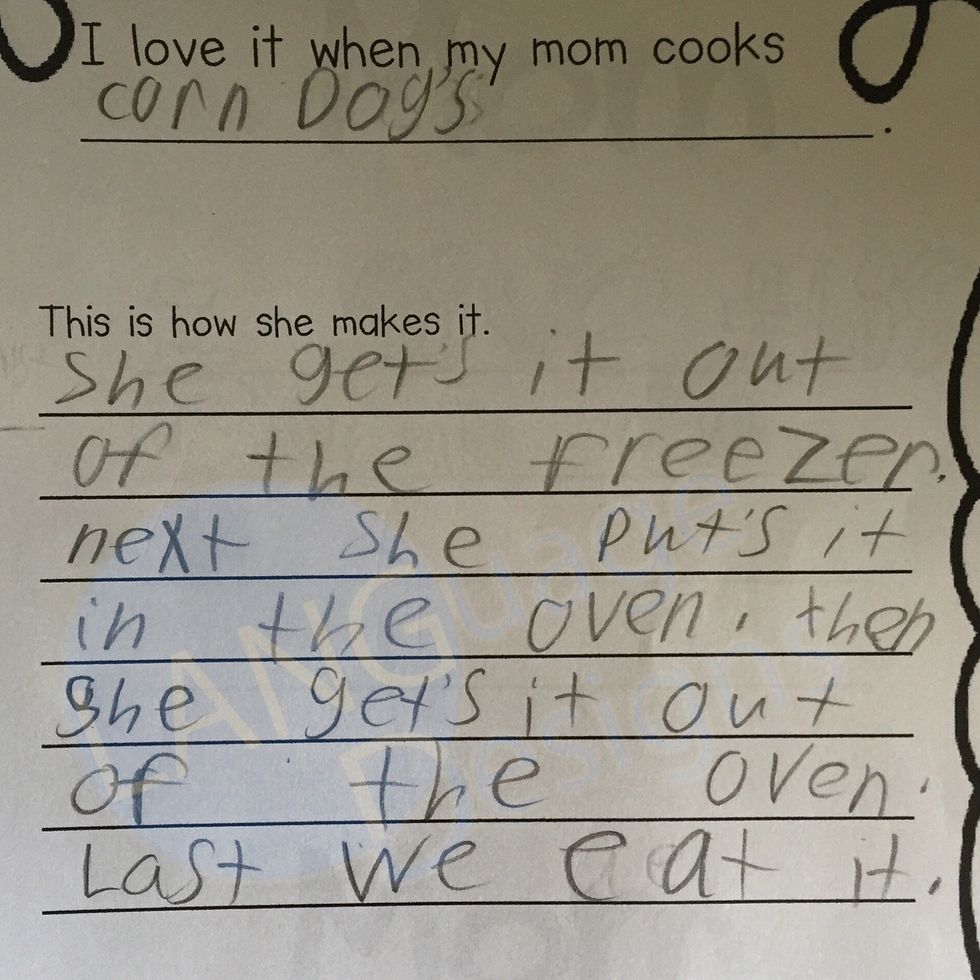 I love it when my mom cooks
corn Dog's
.
This is how she makes it.
She get's it out
of the freezer.
next she put's it
in the oven. then
She get's it out
of the oven.
Last we eat it.
LANGuage
Designs